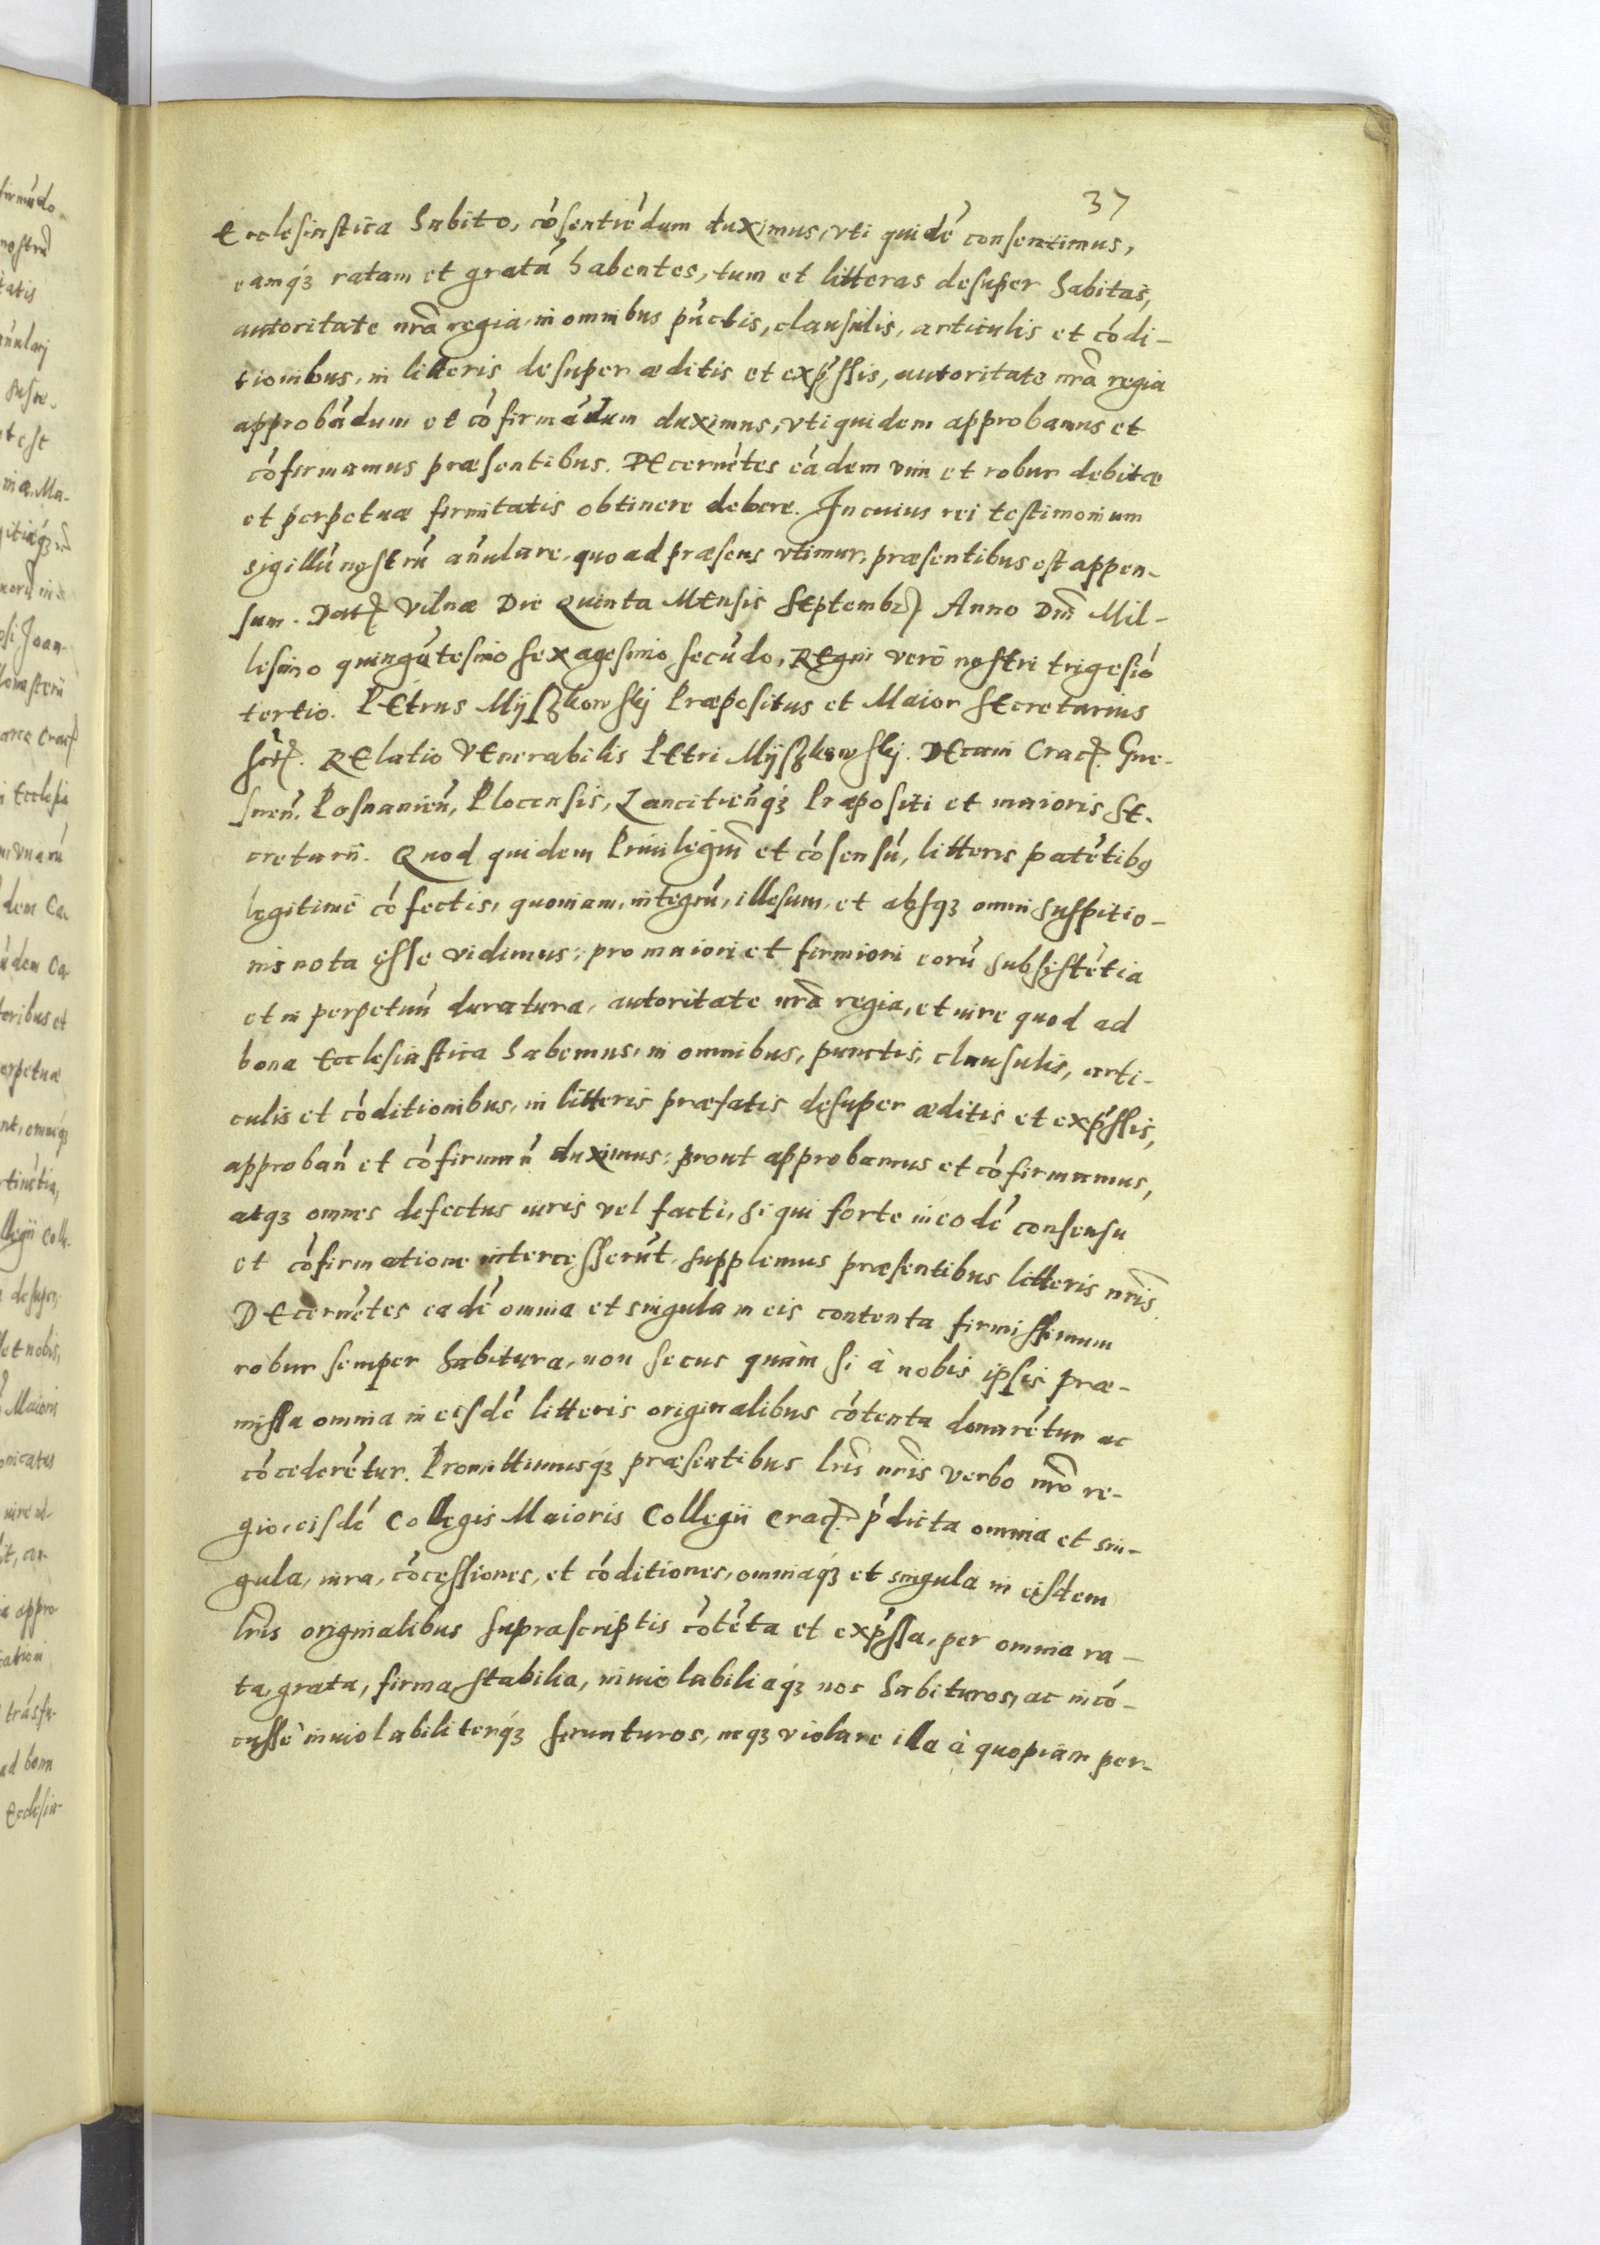 37
Ecclesiastica habito, cósentiédum duximus, vti quidé consentimus,
eamq́ꝫ ratam et gratá habentes, tum et litteras desuper habitas,
autoritate nr̃a regia, in omnibus púctis, clausulis, articulis et códi-
tionibus, in litteris desuper æditis et exp̃ssis, autoritate nr̃a regia
approbádum et cófirmádum duximus, vti quidem approbamus et
cófirmamus præsentibus. DEcernétes eádem vim et robur debitæ
et perpetuæ firmitatis obtinere debere. In cuius rei testimonium
sigillú nostrú anulare, quo ad præsens vtimur, præsentibus est appen-
sum. Datꝭ Vilnæ Die Quinta MEnsis SEptembrꝭ Anno Dnĩ Mil-
lesimo quingétesimo sexagesimo secúdo, REgni verò nostri trigesió
tertio. PEtrus Mijſʒkowskij Præpositus et Maior SEcretarius
sctꝭ. RElatio VEnerabilis PEtri Mijſʒkowskij. DEcani Cracꝭ. Gne-
sneñ, Posnanieñ, Plocensis, Lancitieñq́ꝫ Præpositi et maioris SE-
cretarii. Quod quidem Priuilegiũ et cósensú, litteris patétibꝯ
legitimè cófectis, quoniam, integrú, illesum, et absqꝫ omni suspitio-
nis nota esse vidimus: pro maiori et firmiori eorú subsistétia
et in perpetuú duratura, autoritate nr̃a regia, et iure quod ad
bona Ecclesiastica habemus, in omnibus, punctis, clausulis, arti-
culis et códitionibus, in litteris præfatis desuper æditis et exp̃ssis,
approbañ et cófirmañ duximus: prout approbamus et cófirmamus,
atqꝫ omnes defectus iuris vel facti, si qui forte in eodé consensu
et cófirmatione intercesserút, supplemus præsentibus litteris nr̃is
DEcernétes eadé omnia et singula in eis contenta firmissimum
robur semper habitura, non secus quàm si à nobis ipsis præ-
missa omnia in eisdé litteris originalibus cótenta donarétur ac
cócederétur. Promittimusq́ꝫ præsentibus lr̃is nr̃is verbo nr̃o re-
gio, eisdé Collegis Maioris Collegii Cracꝭ. p̃dicta omnia et sin-
gula, iura, cócessiones, et códitiones, omniaq́ꝫ et singula in eisdem
lr̃is originalibus suprascriptis cótéta et exp̃ssa, per omnia ra-
ta, grata, firma, stabilia, inuiolabiliaq́ꝫ nos habituros, ac incó-
cussè inuiolabiliterq́ꝫ seruaturos, neqꝫ violare illa à quopiam per-